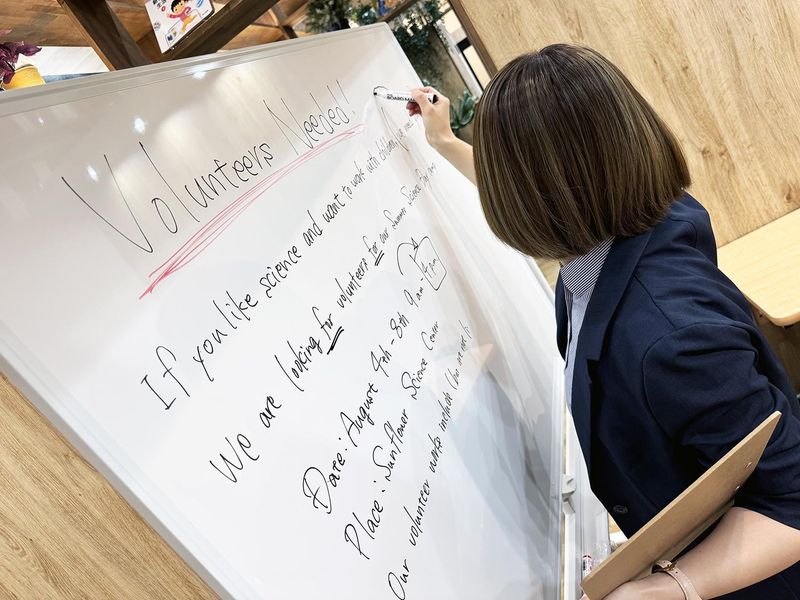 Volunteers Needed!
If you like science and want to work with children,
We are looking for volunteers for our Summer Science Day
Date: August 4th - 8th 9 am
Place: Sunflower Science Center
Our volunteer works include
BOARD